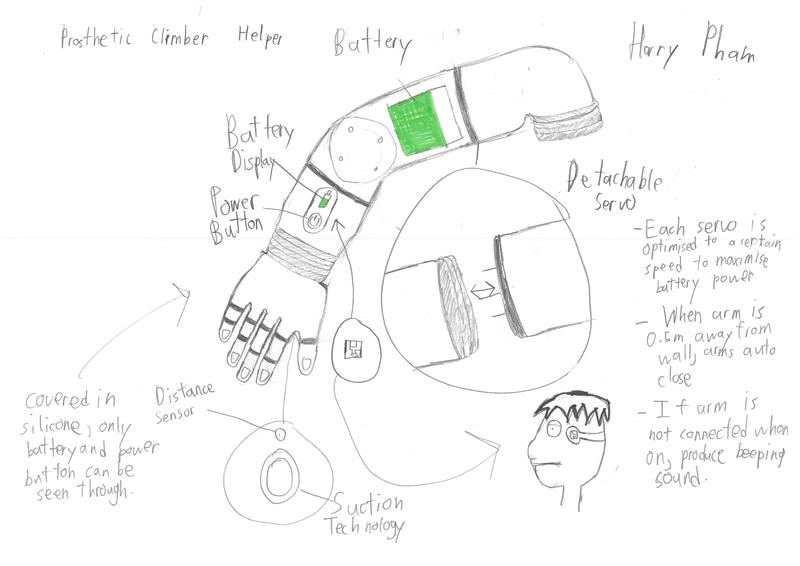 Prosthetic Climber Helper
Battery
Harry Pham
Battery
Display
Power
Button
Detachable
Servo
-Each servo is
optimised to a certain
speed to maximise
battery power
- When arm is
0.5m away from
wall, arms auto
close
- If arm is
not connected when
on, produce beeping
sound.
covered in
silicone, only
battery and power
button can be
seen through.
Distance
sensor
Suction
Technology